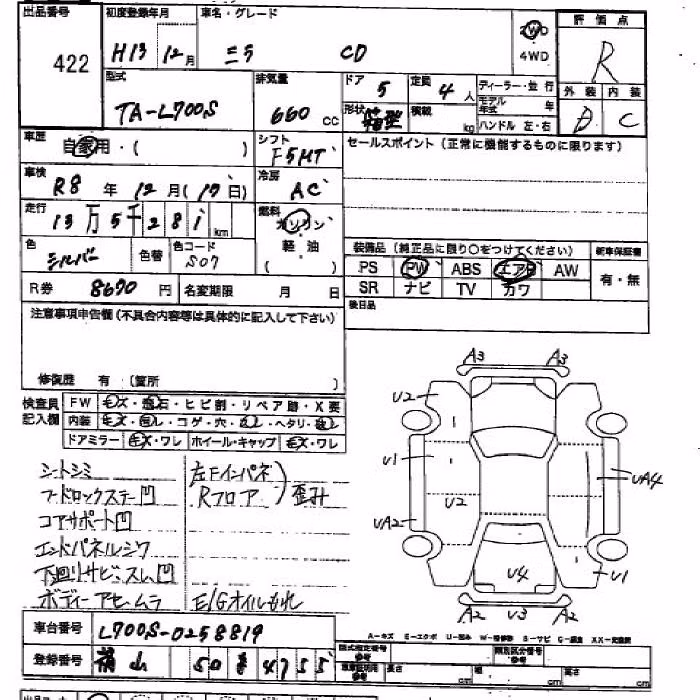 出品番号 初度登録年月 車名・グレード 評価点
422 H13 12月 ミラ CD 2WD 4WD R
型式 排気量 ドア 定員 ディーラー・並行 外装 内装
TA-L700S 660 cc 5 4人 モデル年式 年 D C
形状 箱型 積載 kg ハンドル 左・右
車歴 自家用・( ) シフト F5MT セールスポイント(正常に機能するものに限ります)
車検 R8年12月(17日) 冷房 AC
走行 13万5千281km 燃料 ガソリン 軽油 ( )
色 シルバー 色替 色コード S07 装備品(純正品に限り○をつけてください) 新車保証書
PS PW ABS エアB AW 有・無
R券 8670円 名変期限 月 日 SR ナビ TV カワ
注意事項申告欄(不具合内容等は具体的に記入して下さい) 後日品
修復歴 有 (箇所 )
検査員記入欄 FW キズ・飛石・ヒビ割・リペア跡・X要
内装
ドアミラー キズ・ワレ ホイール・キャップ キズ・ワレ
A3 A3
U2
U1 UA4
U2
UA2
U4 U1
A2 U3 A2
シートシミ 左Fインパネ
フードロックステー凹 Rフロア 歪み
コアサポート凹
エンドパネルシワ
下回りサビ、スレ、凹
ボディーアセ・ムラ E/Gオイルもれ
車台番号 L700S-0258819
A-キズ E-エクボ U-凹み S-サビ
登録番号
型式指定番号 類別区分番号
長さ cm 幅 cm 高さ cm